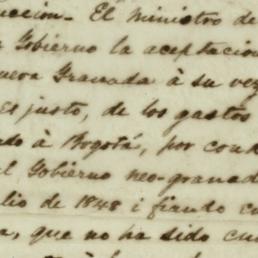 ccion. El ministro de
Gobierno la aceptacion
ueva Granada à su vez
Es justo, de los gastos
ado à Bogotá, por cond
l Gobierno neo-granad
lio de 1848 i firudo cu
a, que no ha sido cu